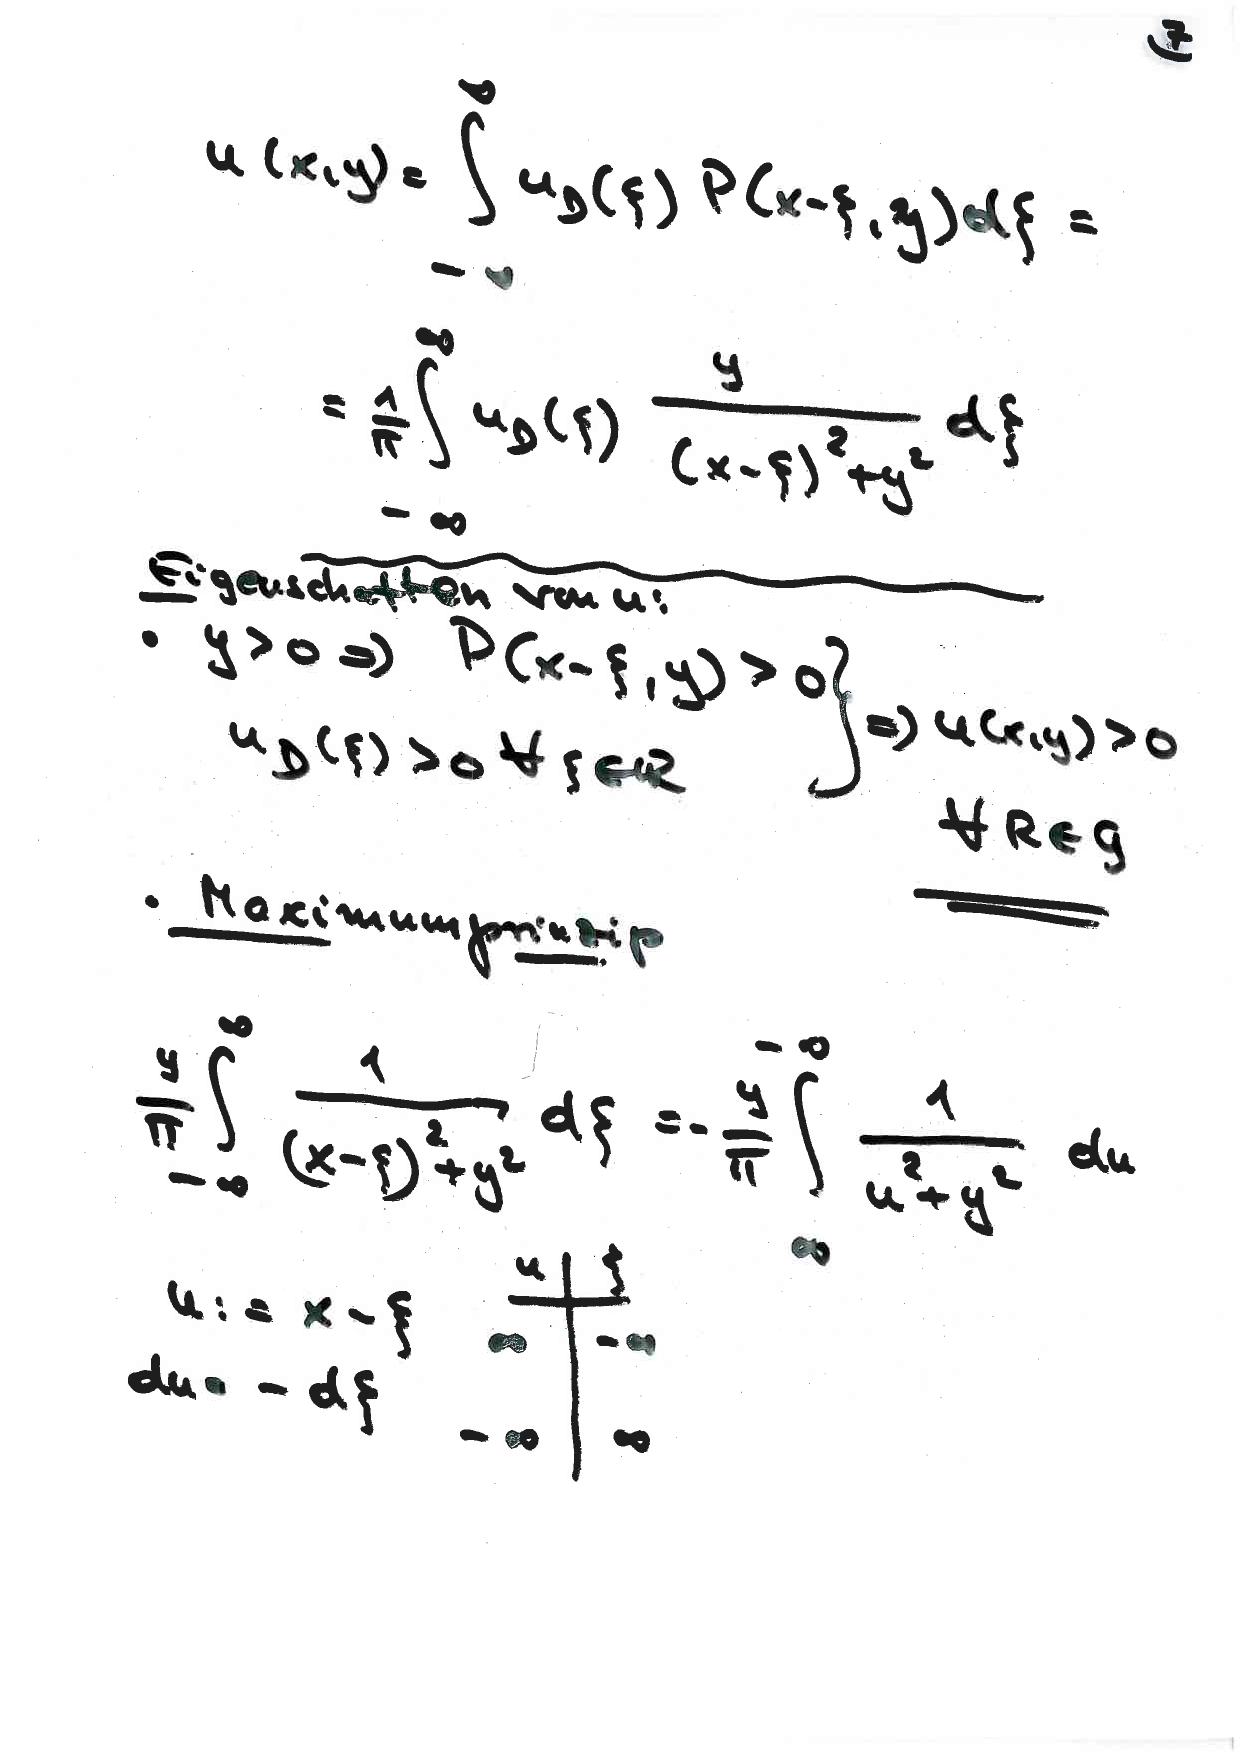 7
u(x,y) = ∫_{-∞}^{∞} u_D(ξ) P(x-ξ, y) dξ =
= 1/π ∫_{-∞}^{∞} u_D(ξ) y/((x-ξ)²+y²) dξ
Eigenschaften von u:
• y>0 ⇒ P(x-ξ,y) > 0 } ⇒ u(x,y) > 0
u_D(ξ) > 0 ∀ ξ∈ℝ
∀ R ∈ G
• Maximumprinzip
y/π ∫_{-∞}^{∞} 1/((x-ξ)²+y²) dξ = - y/π ∫_{∞}^{-∞} 1/(u²+y²) du
u := x-ξ
du = - dξ
u | ξ
∞ | -∞
-∞ | ∞